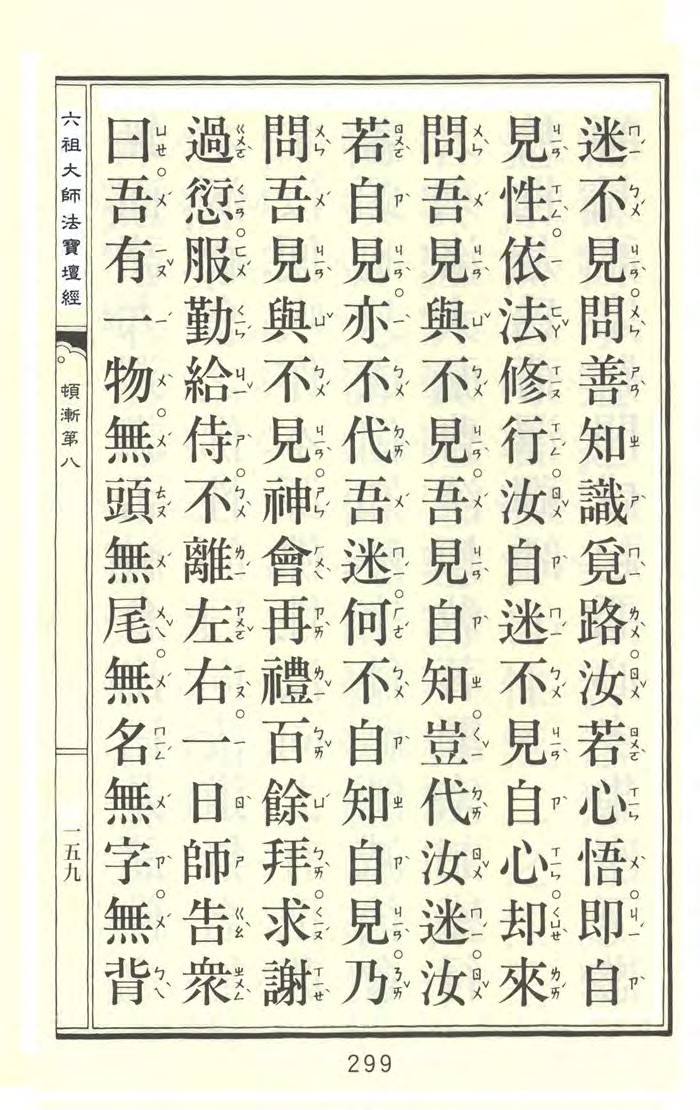 迷不見。問善知識覓路。汝若心悟。即自
見性。依法修行。汝自迷不見自心。却來
問吾見與不見。吾見自知。豈代汝迷。汝
若自見。亦不代吾迷。何不自知自見。乃
問吾見與不見。神會再禮百餘拜。求謝
過愆。服勤給侍。不離左右。一日師告眾
曰。吾有一物。無頭無尾。無名無字。無背
六祖大師法寶壇經
頓漸第八
一五九
299